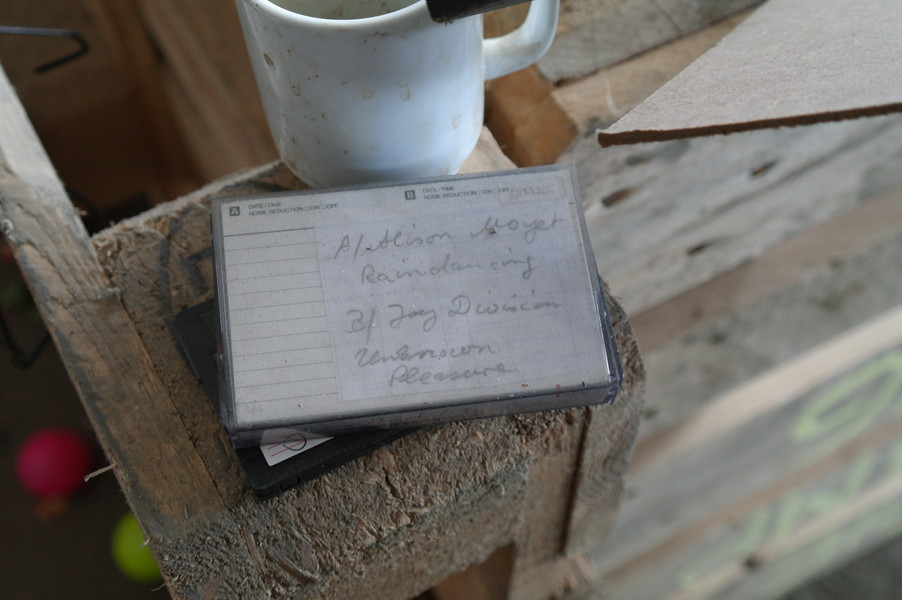 A DATE/TIME
NOISE REDUCTION □ON □OFF
B DATE/TIME
NOISE REDUCTION □ON □OFF
A/ Alison Moyet
Raindancing
B/ Joy Division
Unknown
Pleasure